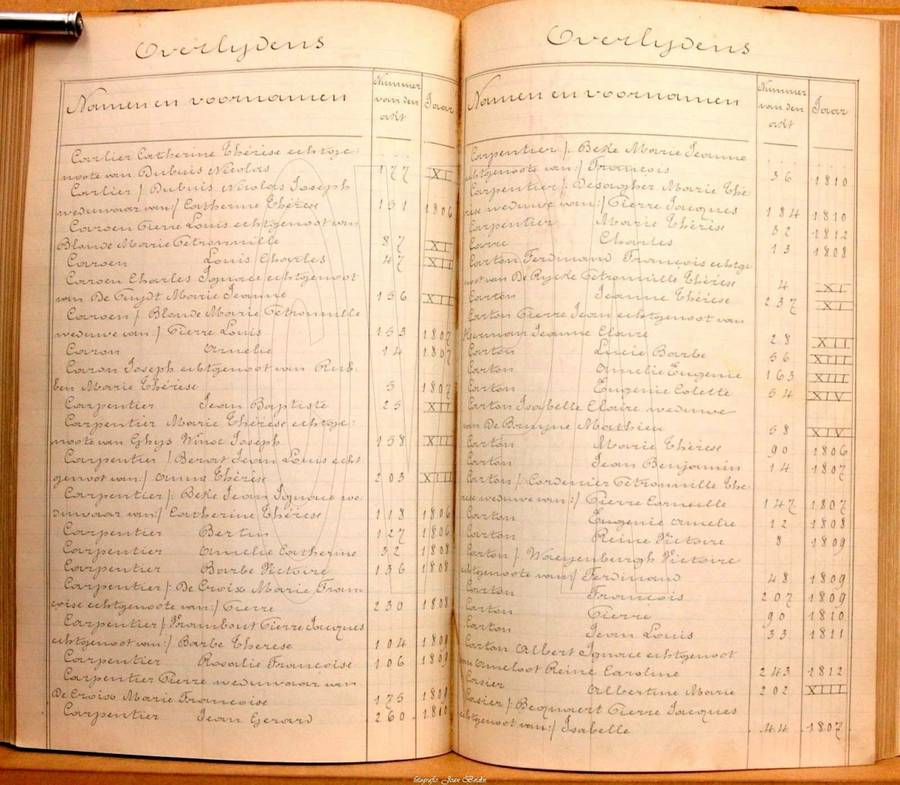 Overlydens
Namen en voornamen
Nummer van den akt
Jaar
Carlier Catherine Thérèse echtge-
noote van Dubuis Nicolas 177 XI
Carlier /: Dubuis Nicolas Joseph
weduwaar van:/ Catherine Thérèse 151 1806
Caroen Pierre Louis echtgenoot van
Blonde Marie Petronnille 87 XI
Caroen Louis Charles 47 XII
Caroen Charles Ignace echtgenoot
van De Cuydt Marie Jeanne 156 XII
Caroen /: Blonde Marie Petronnille
weduwe van:/ Pierre Louis 153 1807
Caron Amelie 14 1807
Caron Joseph echtgenoot van Rub-
ben Marie Thérèse 5 1807
Carpentier Jean Baptiste 25 XII
Carpentier Marie Thérèse echtge-
noote van Ghys Winoc Joseph 158 XII
Carpentier /: Benoit Jean Louis echt
genoot van:/ Anna Thérèse 203 XIII
Carpentier /: Beke Jean Ignace we-
duwaar van:/ Catherine Thérèse 118 1806
Carpentier Bertin 127 1806
Carpentier Amelie Catherine 32 1808
Carpentier Barbe Victoire 136 1808
Carpentier /: De Croix Marie Fran-
çoise echtgenoote van:/ Pierre 230 1808
Carpentier /: Pierre Jacques
echtgenoot van:/ Barbe Therese 104 1809
Carpentier Rosalie Françoise 106 1809
Carpentier Pierre weduwaar van
De Croix Marie Françoise 175 1810
Carpentier Jean Gerard 260 1810
Overlydens
Namen en voornamen
Nummer van den akt
Jaar
Carpentier /: Beke Marie Jeanne
echtgenoote van:/ François 36 1810
Carpentier /: Desagher Marie Thé-
rèse weduwe van:/ Pierre Jacques 184 1810
Carpentier Marie Thérèse 32 1812
Carre Charles 13 1808
Carton Ferdinand François echtge-
noot van De Rycke Petronnille Thérèse 4 XI
Carton Jeanne Thérèse 237 XI
Carton Pierre Jean echtgenoot van
Herman Jeanne Claire 28 XII
Carton Lucie Barbe 56 XIII
Carton Amelie Eugenie 163 XIII
Carton Eugenie Colette 54 XIV
Carton Isabelle Claire weduwe
van De Bruyne Mathieu 58 XIV
Carton Marie Thérèse 90 1806
Carton Jean Benjamin 14 1807
Carton /: Cordenier Petronnille Thé-
rèse weduwe van:/ Pierre Corneille 147 1807
Carton Eugenie Amelie 12 1808
Carton Reine Victoire 8 1809
Carton /: Waeyenburgh Victoire
echtgenoote van:/ Ferdinand 48 1809
Carton François 207 1809
Carton Pierre 90 1810
Carton Jean Louis 33 1811
Carton Albert Ignace echtgenoot
van Ameloot Reine Caroline 243 1812
Casier Albertine Marie 202 XIII
Casier /: Becquaert Pierre Jacques
echtgenoot van:/ Isabelle 44 1807
fotografie: Joan Boidin